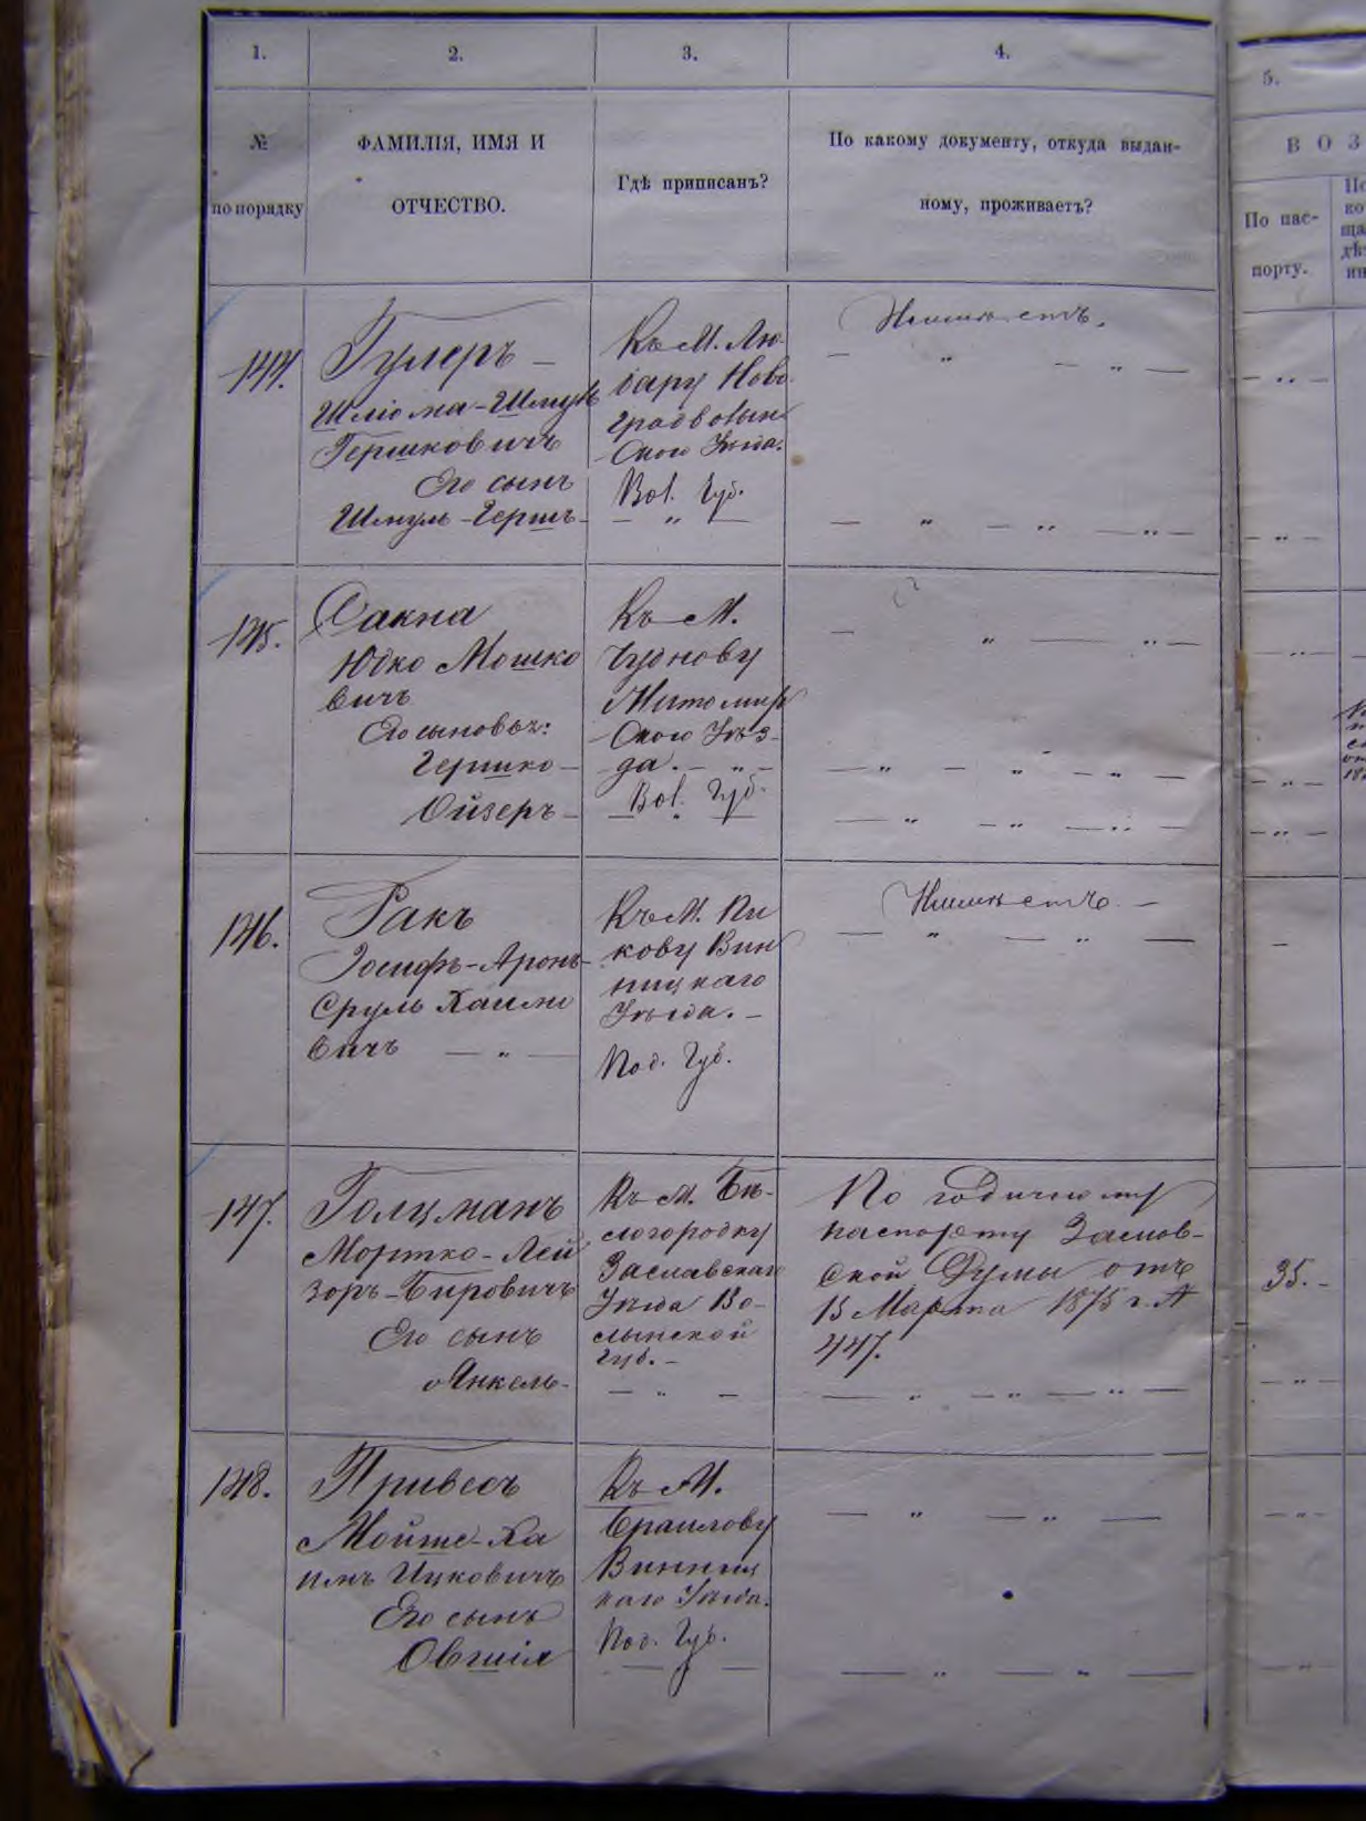 1.
2.
3.
4.
5.
№
по порядку
ФАМИЛІЯ, ИМЯ И
ОТЧЕСТВО.
Гдѣ приписанъ?
По какому документу, откуда выдан-
ному, проживаетъ?
В О З
По пас-
порту.
144.
Гулеръ —
Шліома-Шмуль
Гершковичъ
Его сынъ
Шмуль-Гершъ -
Къ М. Лю-
бару Ново
градволын
скаго Уѣзда.
Вол. Губ.
— „ —
Неимѣетъ.
— „ — „ —
— „ — „ — „ —
— „ —
— „ —
145.
Сакна
Юдко Мошко
вичъ
Его сыновья:
Гершко —
Ойзеръ —
Къ М.
Чуднову
Житомир
скаго Уѣз-
да. — „ —
Вол. Губ.
— „ —
— „ — „ —
— „ — „ — „ —
— „ — „ — „ —
— „ —
— „ —
— „ —
146.
Ракъ
Іосифъ-Аронъ-
Сруль Хаимо
вичъ — „ —
Къ М. Пи
кову Вин
ницкаго
Уѣзда. —
Под. Губ.
Неимѣетъ —
— „ — „ —
—
147.
Голцманъ
Мортко-Лей
зоръ-Бировичъ
Его сынъ
Янкель -
Къ М. Бѣ-
логородку
Заславскаго
Уѣзда Во-
лынской
Губ. —
— „ —
По годичному
паспорту Заслав-
ской Думы отъ
13 Марта 1875 г. №
447.
— „ — „ — „ —
35. -
— „ —
148.
Привесъ
Мойше-Ха
имъ Ицковичъ
Его сынъ
Овшія
Къ М.
Браилову
Винниц
каго Уѣзда.
Под. Губ.
— —
— „ — „ —
— „ — „ —
— „ —
— „ —